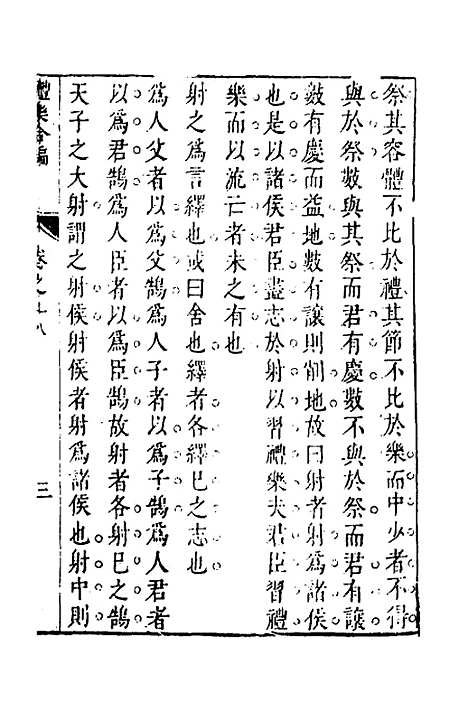 祭其容體不比於禮其節不比於樂而中少者不得
與於祭數與其祭而君有慶數不與於祭而君有讓
數有慶而益地數有讓則削地故曰射者射爲諸侯
也是以諸侯君臣盡志於射以習禮樂夫君臣習禮
樂而以流亡者未之有也
射之爲言繹也或曰舍也繹者各繹已之志也
爲人父者以爲父鵠爲人子者以爲子鵠爲人君者
以爲君鵠爲人臣者以爲臣鵠故射者各射已之鵠
天子之大射謂之射侯射侯者射爲諸侯也射中則
禮樂合編
卷之十八
三